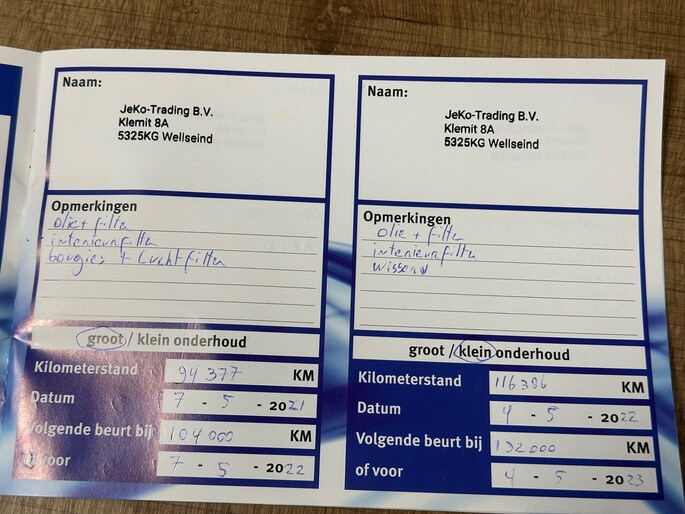 Naam:
JeKo-Trading B.V.
Klemit 8A
5325KG Wellseind
Opmerkingen
olie + filter
interieurfilter
bougies + luchtfilter
groot / klein onderhoud
Kilometerstand 94 377 KM
Datum 7 - 5 - 2021
Volgende beurt bij 104 000 KM
of voor 7 - 5 - 2022
Naam:
JeKo-Trading B.V.
Klemit 8A
5325KG Wellseind
Opmerkingen
olie + filter
interieurfilter
wissers
groot / klein onderhoud
Kilometerstand 116 386 KM
Datum 4 - 5 - 2022
Volgende beurt bij 132 000 KM
of voor 4 - 5 - 2023